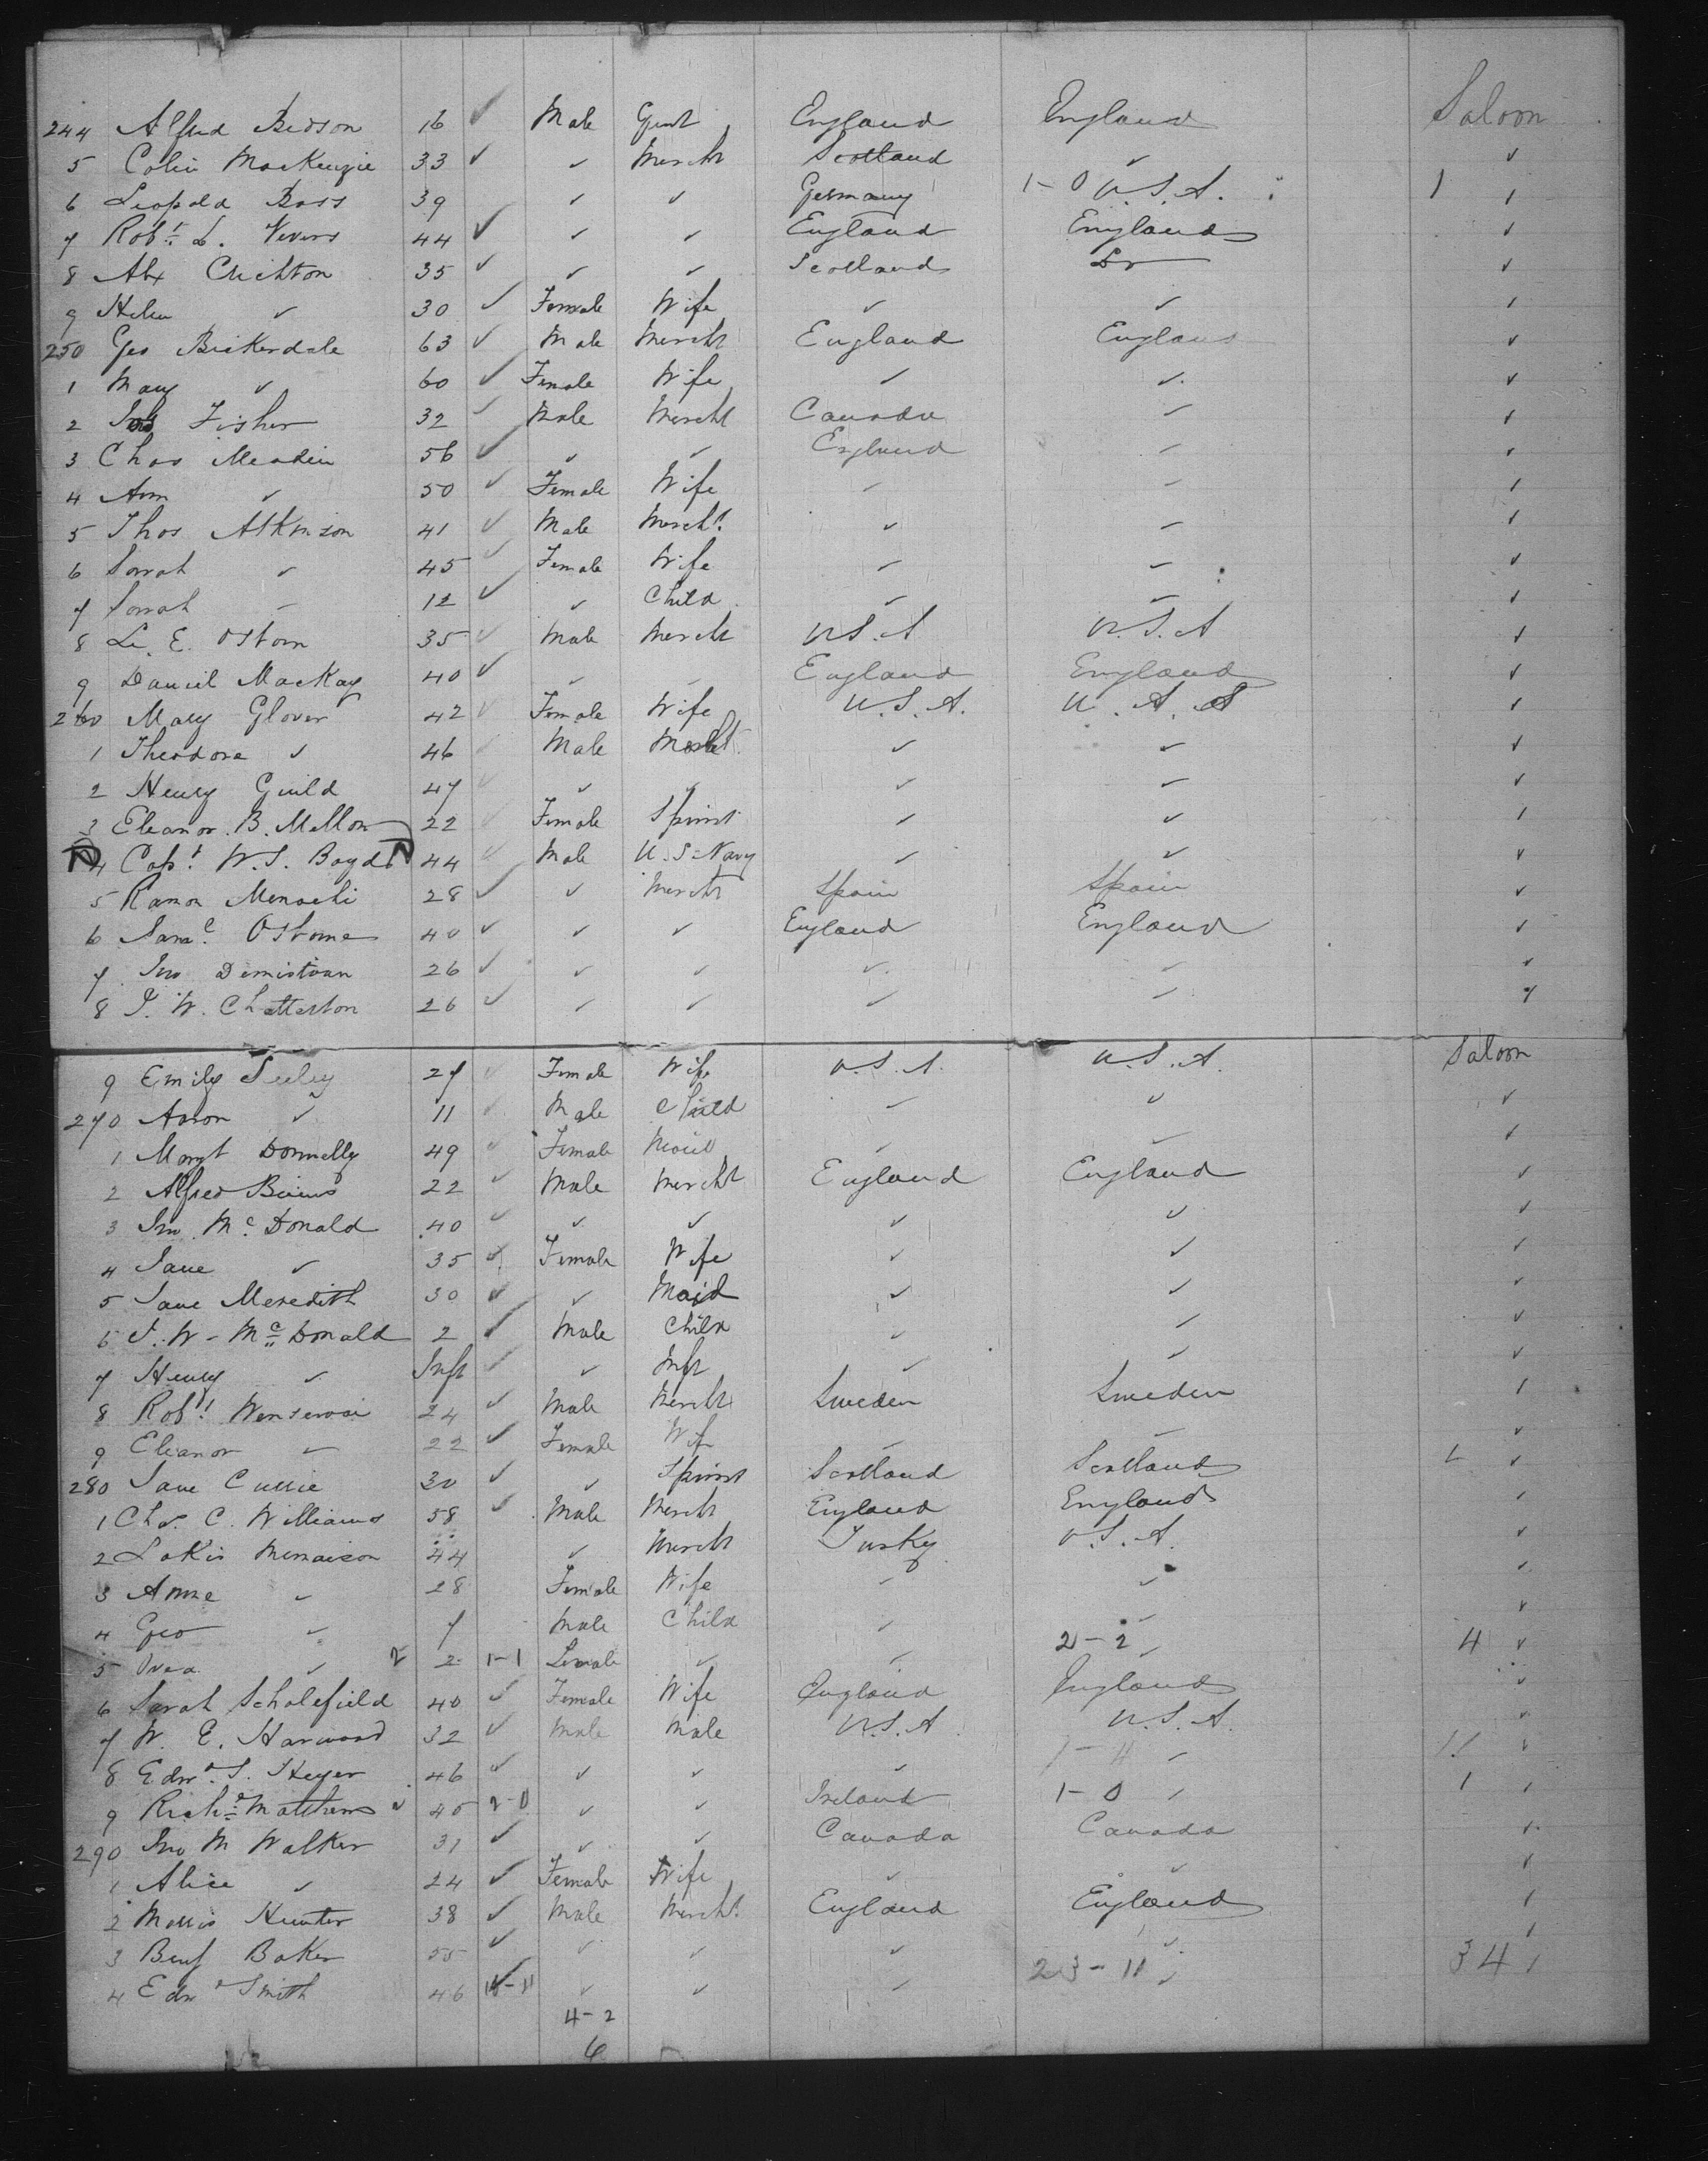 244 Alfred Bedson 16 ✓ Male Gent England England Saloon
5 Colin MacKenzie 33 ✓ ✓ Mercht Scotland ✓ ✓
6 Leopold Boss 39 ✓ ✓ Germany 1-0 U.S.A. 1 ✓
7 Robt L. Vevers 44 ✓ ✓ ✓ England England ✓
8 Alx Crichton 35 ✓ ✓ ✓ Scotland Do ✓
9 Helen ✓ 30 ✓ Female Wife ✓ ✓ ✓
250 Geo Bickerdale 63 ✓ Male Mercht England England ✓
1 Mary ✓ 60 ✓ Female Wife ✓ ✓ ✓
2 Fisher 32 ✓ Male Mercht Canada ✓ ✓
3 Chas Meadin 56 ✓ ✓ ✓ England ✓ ✓
4 Ann ✓ 50 ✓ Female Wife ✓ ✓ ✓
5 Thos Atkinson 41 ✓ Male Mercht ✓ ✓ ✓
6 Sarah ✓ 45 ✓ Female Wife ✓ ✓ ✓
7 Sarah ✓ 12 ✓ ✓ Child ✓ ✓ ✓
8 E. Osborn 35 ✓ Male Mercht U.S.A U.S.A ✓
9 Daniel MacKay 40 ✓ ✓ ✓ England England ✓
260 Mary Glover 42 ✓ Female Wife U.S.A. U.A.S ✓
1 Theodore ✓ 46 ✓ Male Mercht ✓ ✓ ✓
2 Henry Guild 47 ✓ ✓ ✓ ✓ ✓ ✓
3 Eleanor B. Mellon 22 ✓ Female Spinst ✓ ✓ ✓
4 Capt W.S. Boyd 44 ✓ Male U.S. Navy ✓ ✓ ✓
5 Ramon Menachi 28 ✓ ✓ Mercht Spain Spain ✓
6 Saml Osborne 40 ✓ ✓ ✓ England England ✓
7 Jno Dimistoun 26 ✓ ✓ ✓ ✓ ✓ ✓
8 J. W. Chatterton 26 ✓ ✓ ✓ ✓ ✓ ✓
9 Emily Seeley 27 ✓ Female Wife U.S.A. U.S.A. Saloon
270 Aaron ✓ 11 ✓ Male Child ✓ ✓ ✓
1 Margt Donnelly 49 ✓ Female Maid ✓ ✓ ✓
2 Alfred Binns 22 ✓ Male Mercht England England ✓
3 Jno McDonald 40 ✓ ✓ ✓ ✓ ✓ ✓
4 Jane ✓ 35 ✓ Female Wife ✓ ✓ ✓
5 Jane Meredith 30 ✓ ✓ Maid ✓ ✓ ✓
6 J. W- McDonald 2 ✓ Male Child ✓ ✓ ✓
7 Henry ✓ Inft ✓ ✓ Inft ✓ ✓ ✓
8 Robt 24 ✓ Male Mercht Sweden Sweden ✓
9 Eleanor ✓ 22 ✓ Female Wife ✓ ✓ ✓
280 Jane Currie 30 ✓ ✓ Spinst Scotland Scotland ✓
1 Chas. C. Williams 58 ✓ Male Mercht England England ✓
2 Lakis 44 ✓ Mercht Turky U.S.A. ✓
3 Anne ✓ 28 Female Wife ✓ ✓ ✓
4 Geo ✓ 7 Male Child ✓ ✓ ✓
5 ✓ 2 2 1-1 Female ✓ ✓ 2-2 ✓ 4 ✓
6 Sarah Scholefield 40 ✓ Female Wife England England ✓
7 W. E. Harwood 32 ✓ Male Male U.S.A. U.S.A. ✓
8 Edwd. S. Heyer 46 ✓ ✓ ✓ ✓ 7-4 ✓ 11 ✓
9 Richd Matthews ✓ 45 2-0 ✓ ✓ Ireland 1-0 ✓ 1 ✓
290 Jno M Walker 31 ✓ ✓ ✓ Canada Canada ✓
1 Alice ✓ 24 ✓ Female Wife ✓ ✓ ✓
2 Morris Hunter 38 ✓ Male Mercht England England ✓
3 Benj Baker 55 ✓ ✓ ✓ ✓ ✓ ✓
4 Edwd Smith 46 ✓ ✓ ✓ ✓ 23-11 ✓ 34 ✓
4-2
6